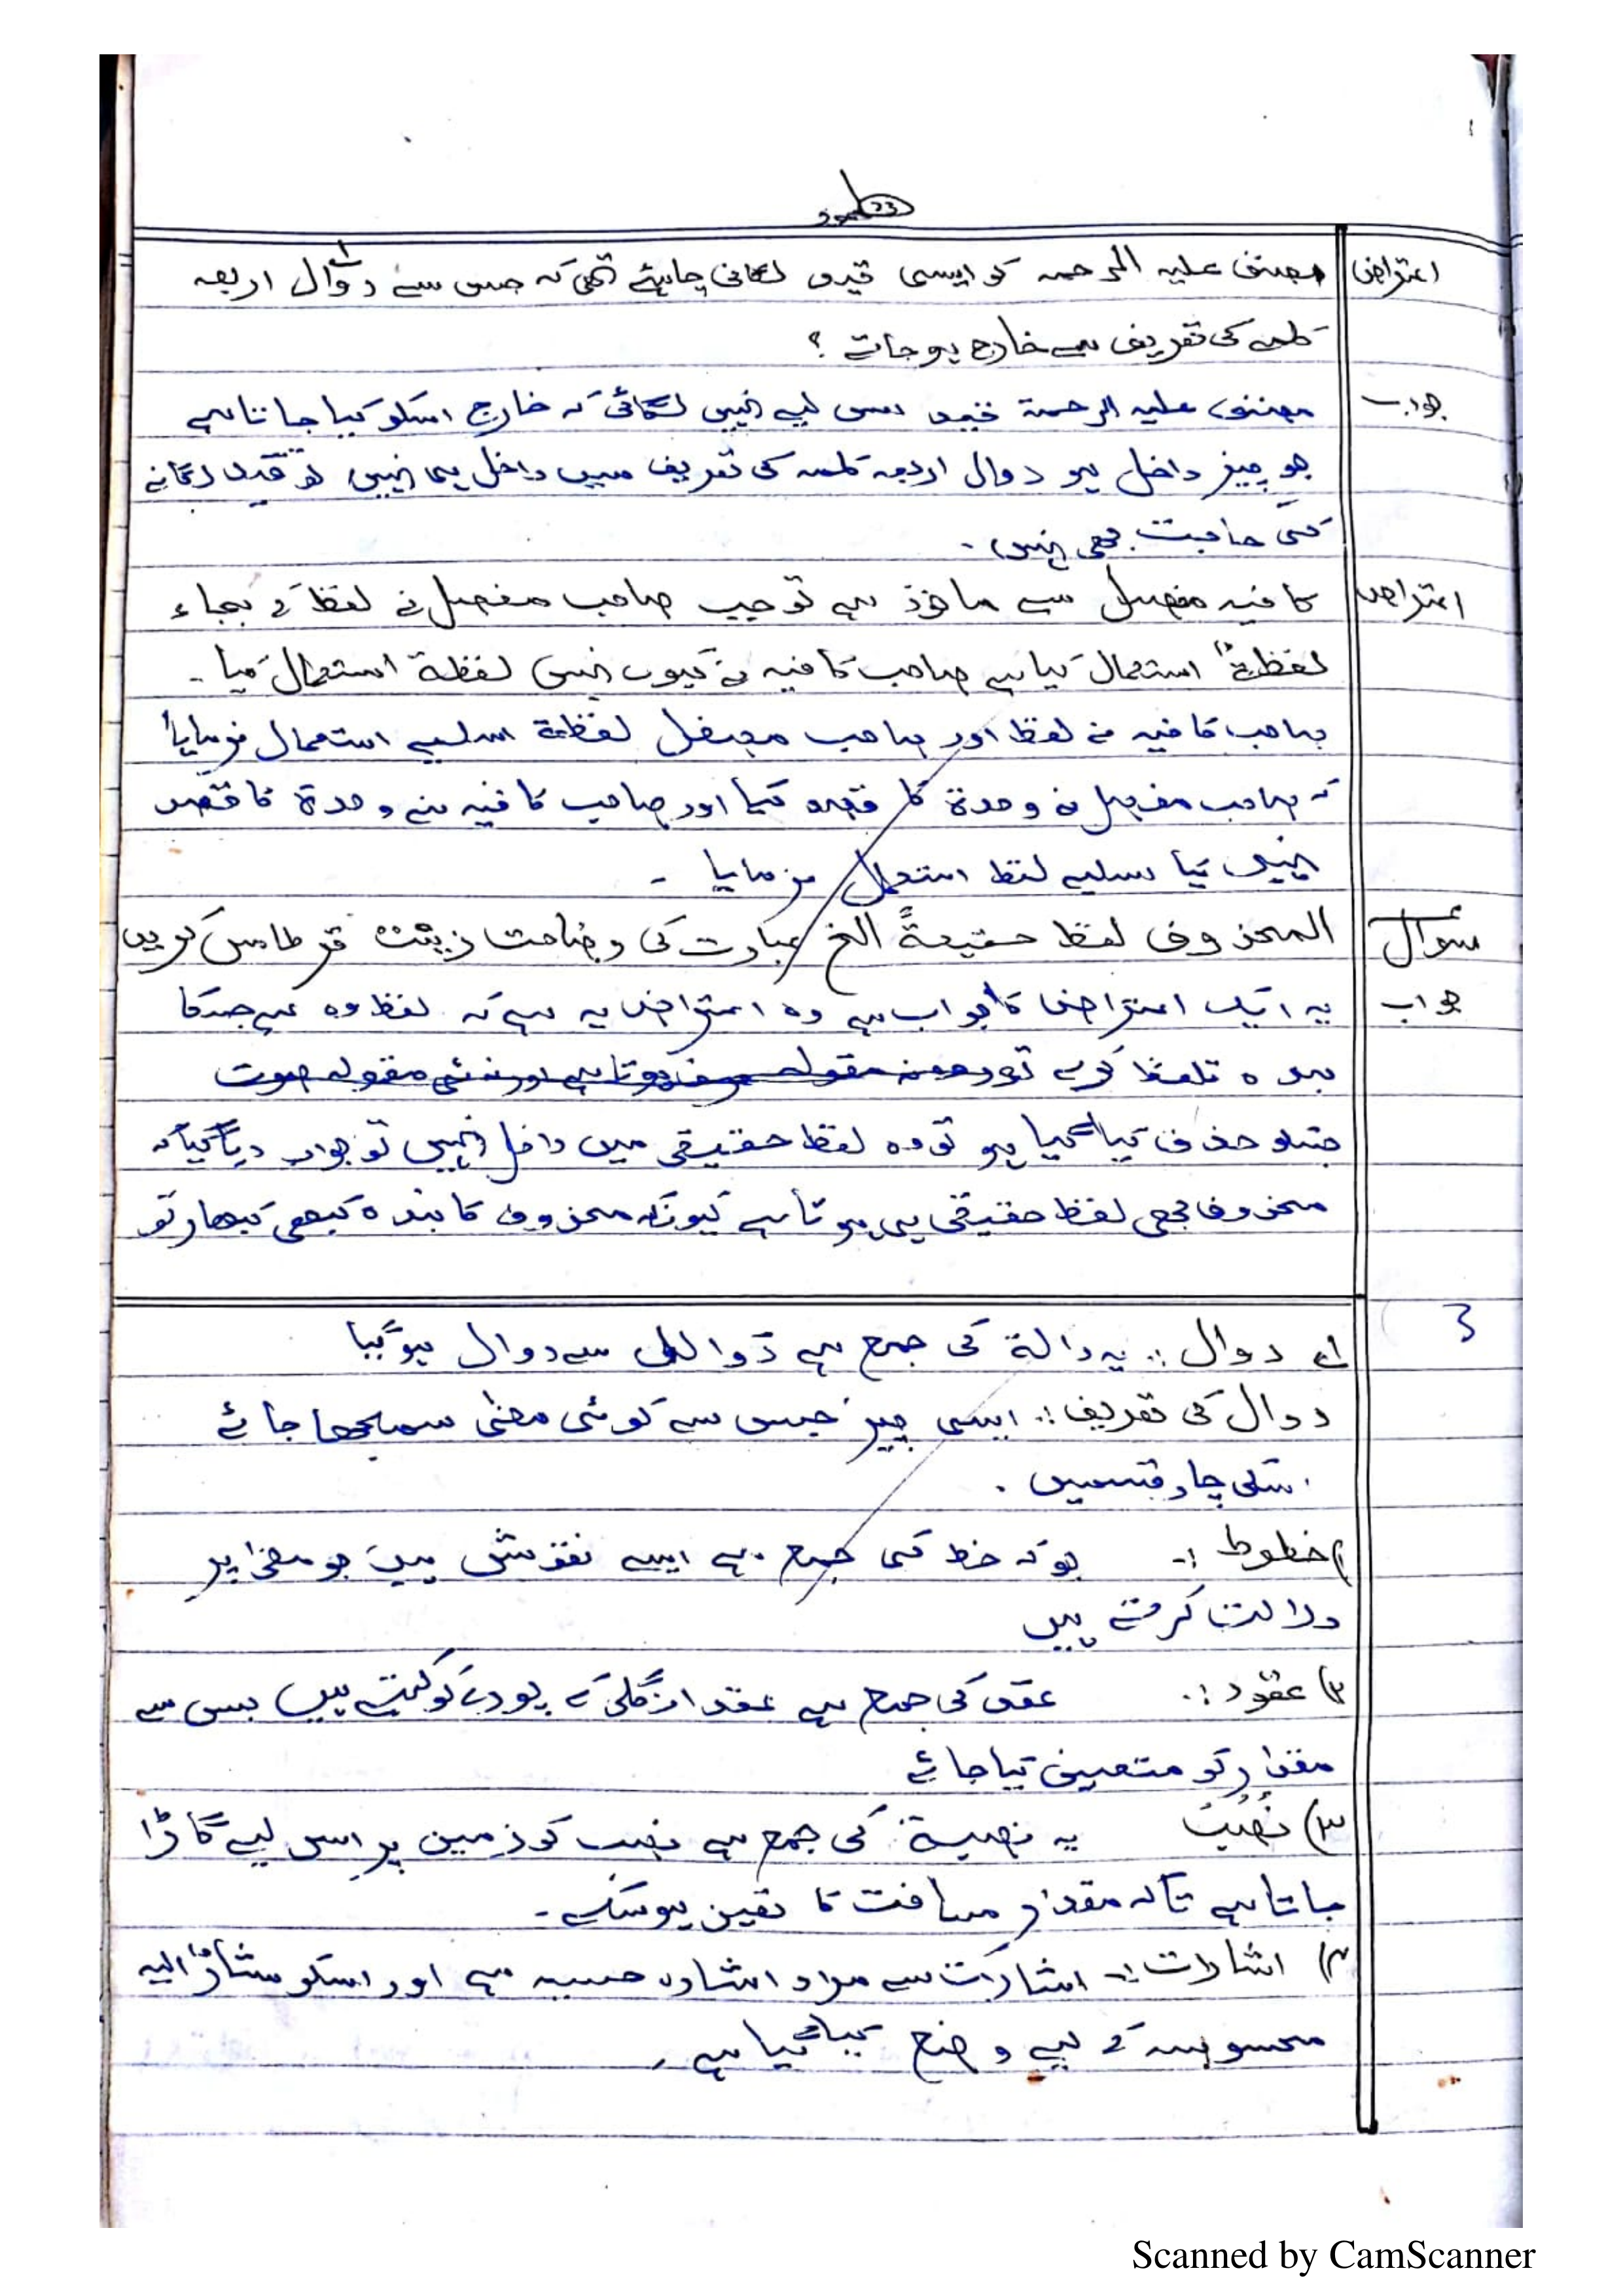 23
اعتراض مصنف علیہ الرحمہ کو ایسی قید لگانی چاہئے تھی کہ جس سے دوال اربعہ
کلمہ کی تعریف سے خارج ہو جاتے ؟
جواب مصنف علیہ الرحمۃ قید اس لیے نہیں لگائی کہ خارج اسکو کیا جاتا ہے
جو چیز داخل ہو دوال اربعہ کلمہ کی تعریف میں داخل ہی نہیں تو قید لگانے
کی حاجت بھی نہیں ۔
اعتراض کافیہ مفصل سے ماخوذ ہے تو جیب صاحب مفصل نے لفظ کے بجاء
لفظۃ استعمال کیا ہے صاحب کافیہ نے کیوں نہیں لفظۃ استعمال کیا ۔
صاحب کافیہ نے لفظ اور صاحب مفصل لفظۃ اسلیے استعمال فرمایا
کہ صاحب مفصل نے وحدۃ کا قصد کیا اور صاحب کافیہ نے وحدۃ کا قصد
نہیں کیا اسلیے لفظ استعمال فرمایا ۔
سوال المحذوف لفظ حقیقۃً الخ عبارت کی وضاحت زینت قرطاس کریں
جواب یہ ایک اعتراض کا جواب ہے وہ اعتراض یہ ہے کہ لفظ وہ ہے جسکا
بندہ تلفظ کرے تو
جسکو حذف کیا گیا ہو تو وہ لفظ حقیقی میں داخل نہیں تو جواب دیا گیا کہ
محذوف بھی لفظ حقیقی ہی ہوتا ہے کیونکہ محذوف کا بندہ کبھی کبھار تو
3
۱؎ دوال :. یہ دالۃ کی جمع ہے دوالل سے دوال ہوگیا
دوال کی تعریف :. ایسی چیز جس سے کوئی معنی سمجھا جائے
اسکی چار قسمیں .
۱) خطوط :- جو کہ خط کی جمع ہے ایسے نقوش ہیں جو معنی پر
دلالت کرتے ہیں
۲) عقود :. عقد کی جمع ہے عقد انگلی کے پورے کو کہتے ہیں جس سے
مقدار کو متعین کیا جائے
۳) نُصُبٌ یہ نصیبۃ کی جمع ہے نصب کو زمین پر اس لیے گاڑا
جاتا ہے تاکہ مقدار مسافت کا یقین ہوسکے ۔
۴) اشارات :- اشارات سے مراد اشارہ حسیہ ہے اور اسکو مشارٌ الیہ
محسوسہ کے لیے وضع کیا گیا ہے ۔
Scanned by CamScanner